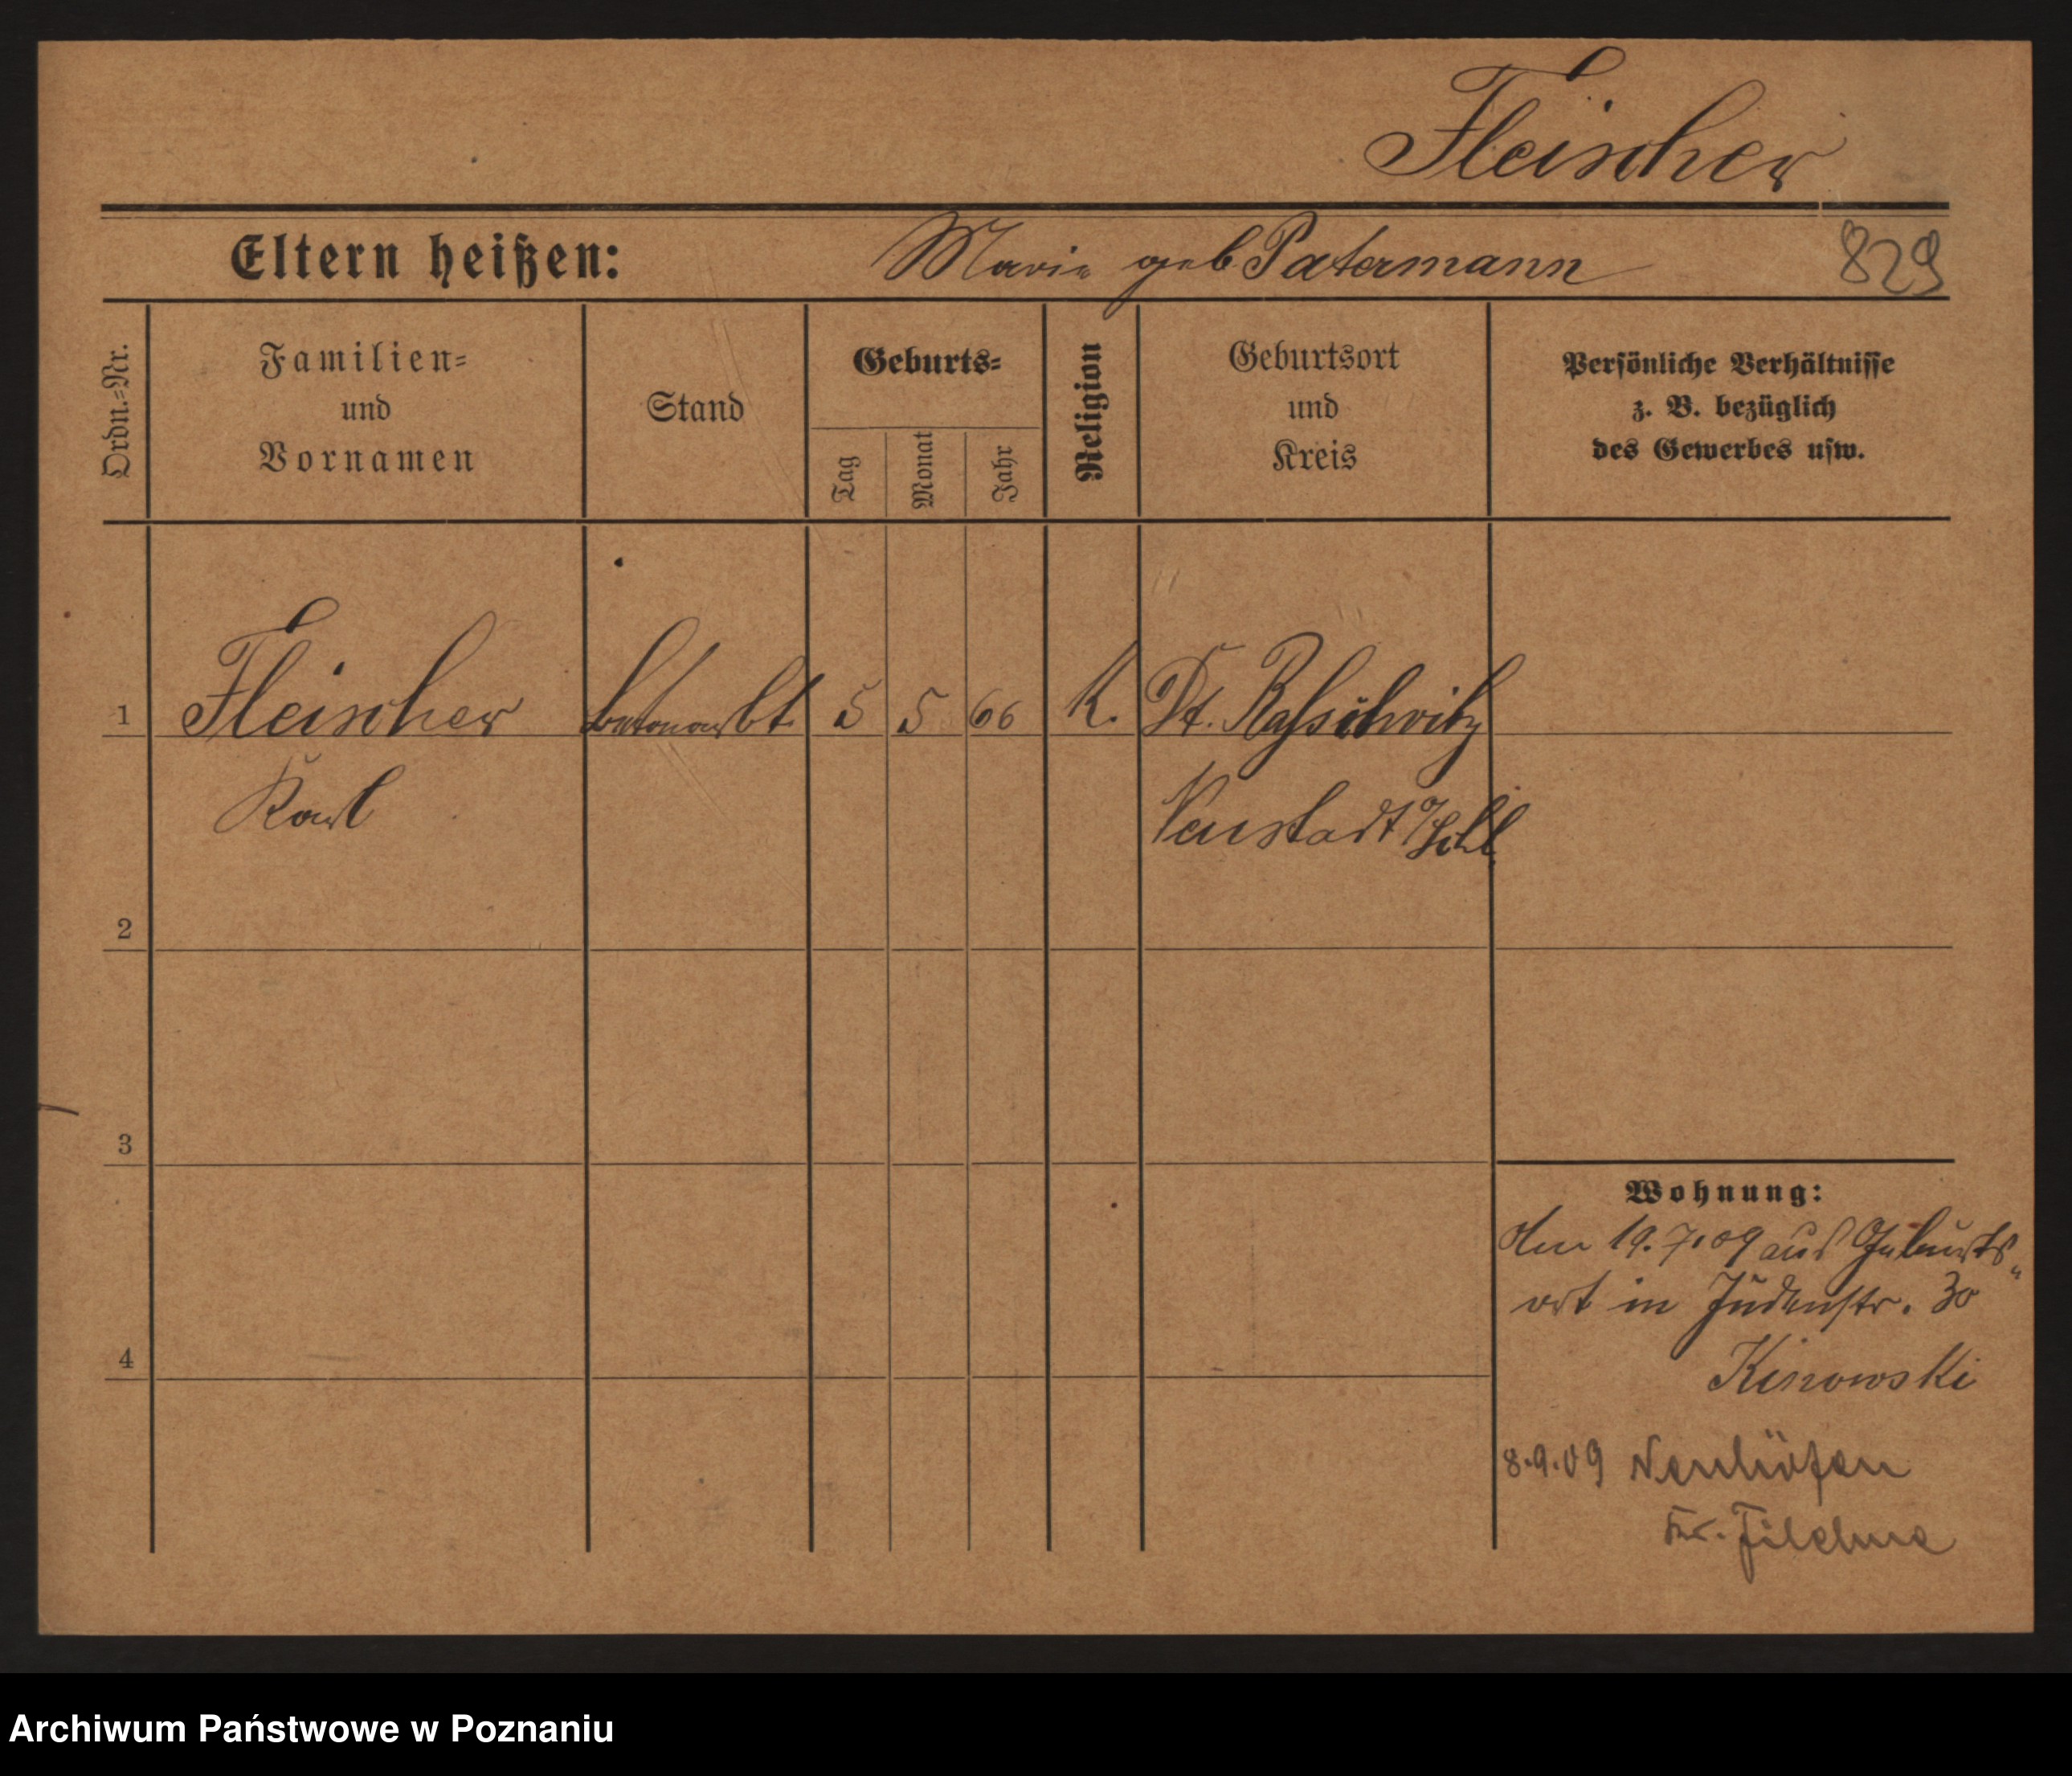 Fleischer
Eltern heißen: Marie geb Patermann 829
Ordn.=Nr.
Familien=
und
Vornamen
Stand
Geburts=
Tag
Monat
Jahr
Religion
Geburtsort
und
Kreis
Persönliche Verhältnisse
z. B. bezüglich
des Gewerbes usw.
1 Fleischer Betonarbt. 5 5 66 K. Dt. Rasselwitz
Karl Neustadt O/Schl.
2
3
4
Wohnung:
Am 19.7.09 aus Geburts„
ort in Judenstr. 30
Kinowski
8.9.09 Neuhöfen
Kr. Filehne
Archiwum Państwowe w Poznaniu